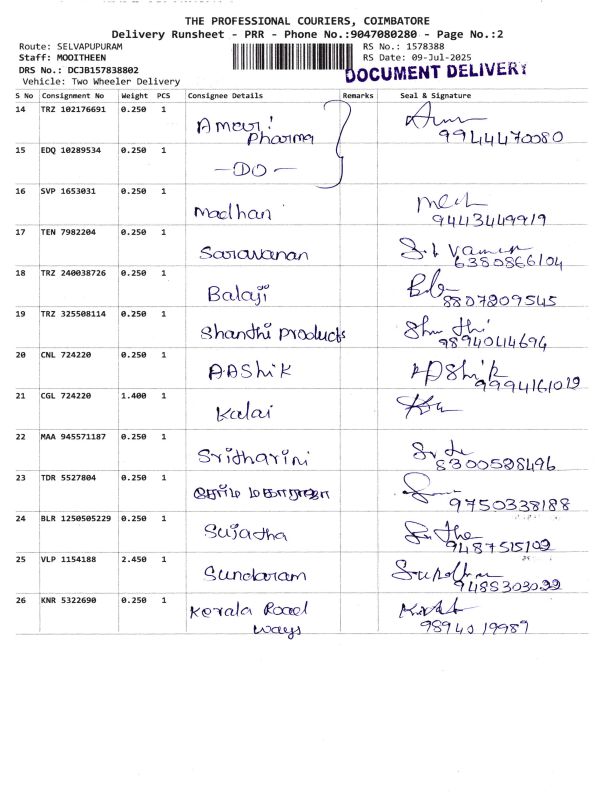 THE PROFESSIONAL COURIERS, COIMBATORE
Delivery Runsheet - PRR - Phone No.:9047080280 - Page No.:2
Route: SELVAPUPURAM
RS No.: 1578388
Staff: MOOITHEEN
RS Date: 09-Jul-2025
DRS No.: DCJB157838802
DOCUMENT DELIVERY
Vehicle: Two Wheeler Delivery
S No Consignment No Weight PCS Consignee Details Remarks Seal & Signature
14 TRZ 102176691 0.250 1 Pharma 9944470080
15 EDQ 10289534 0.250 1 -DO-
16 SVP 1653031 0.250 1 Madhan 9443449919
17 TEN 7982204 0.250 1 Saravanan 6380866104
18 TRZ 240038726 0.250 1 Balaji 8807209545
19 TRZ 325508114 0.250 1 Shanthi products
20 CNL 724220 0.250 1 AAShik 9994161019
21 CGL 724220 1.400 1 Kalai
22 MAA 945571187 0.250 1 Sritharini 8300528496
23 TDR 5527804 0.250 1 9750338188
24 BLR 1250505229 0.250 1 Sujatha 9487515109
25 VLP 1154188 2.450 1 Sundaram
26 KNR 5322690 0.250 1 Kerala Road
ways 9894019989